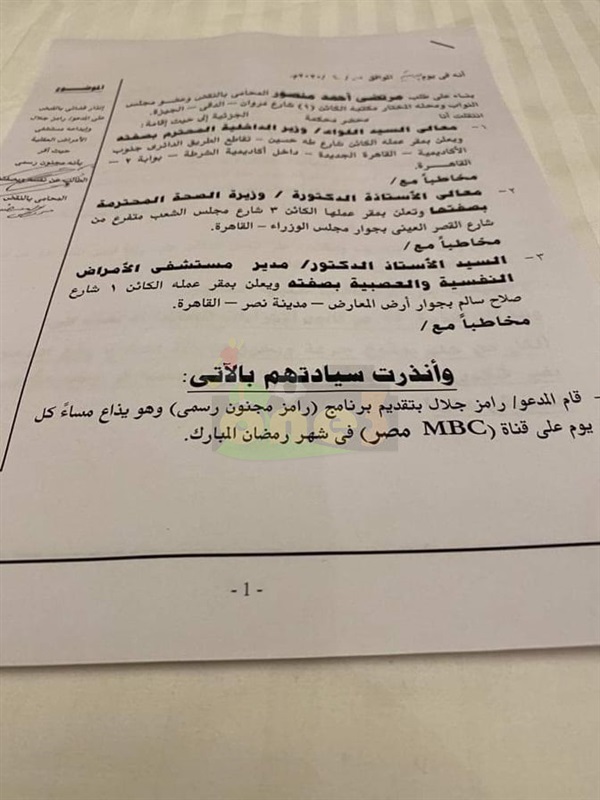 أنه فى يوم الموافق / /٢٠٢٠م.
بناء على طلب مرتضى أحمد منصور المحامى بالنقض وعضو مجلس
النواب ومحله المختار مكتبه الكائن (٩) شارع مروان – الدقى – الجيزة.
انتقلت أنا محضر محكمة الجزئية إلى حيث إقامة:
١- معالى السيد اللواء/ وزير الداخلية المحترم بصفته
ويعلن بمقر عمله الكائن شارع طه حسين – تقاطع الطريق الدائرى جنوب
الأكاديمية – القاهرة الجديدة – داخل أكاديمية الشرطة – بوابة ٢ –
القاهرة.
مخاطباً مع/
٢- معالى الأستاذة الدكتورة / وزيرة الصحة المحترمة
بصفتها وتعلن بمقر عملها الكائن ٣ شارع مجلس الشعب متفرع من
شارع القصر العينى بجوار مجلس الوزراء – القاهرة.
مخاطباً مع/
٣- السيد الأستاذ الدكتور/ مدير مستشفى الأمراض
النفسية والعصبية بصفته ويعلن بمقر عمله الكائن ١ شارع
صلاح سالم بجوار أرض المعارض – مدينة نصر – القاهرة.
مخاطباً مع/
الموضوع
إنذار قضائى بالقبض
على المدعو رامز جلال
وإيداعه مستشفى
الأمراض العقلية
حيث أقر
بأنه مجنون رسمى
الطالب عن نفسه وبصفته
المحامى بالنقض
وأنذرت سيادتهم بالآتى:
- قام المدعو/ رامز جلال بتقديم برنامج (رامز مجنون رسمى) وهو يذاع مساءً كل
يوم على قناة (MBC مصر) فى شهر رمضان المبارك.
- 1 -